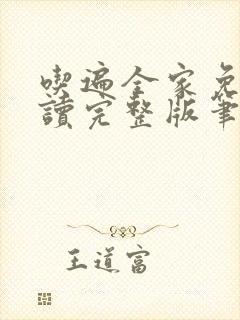 喫遍全家免
讀完整版筆
王道富